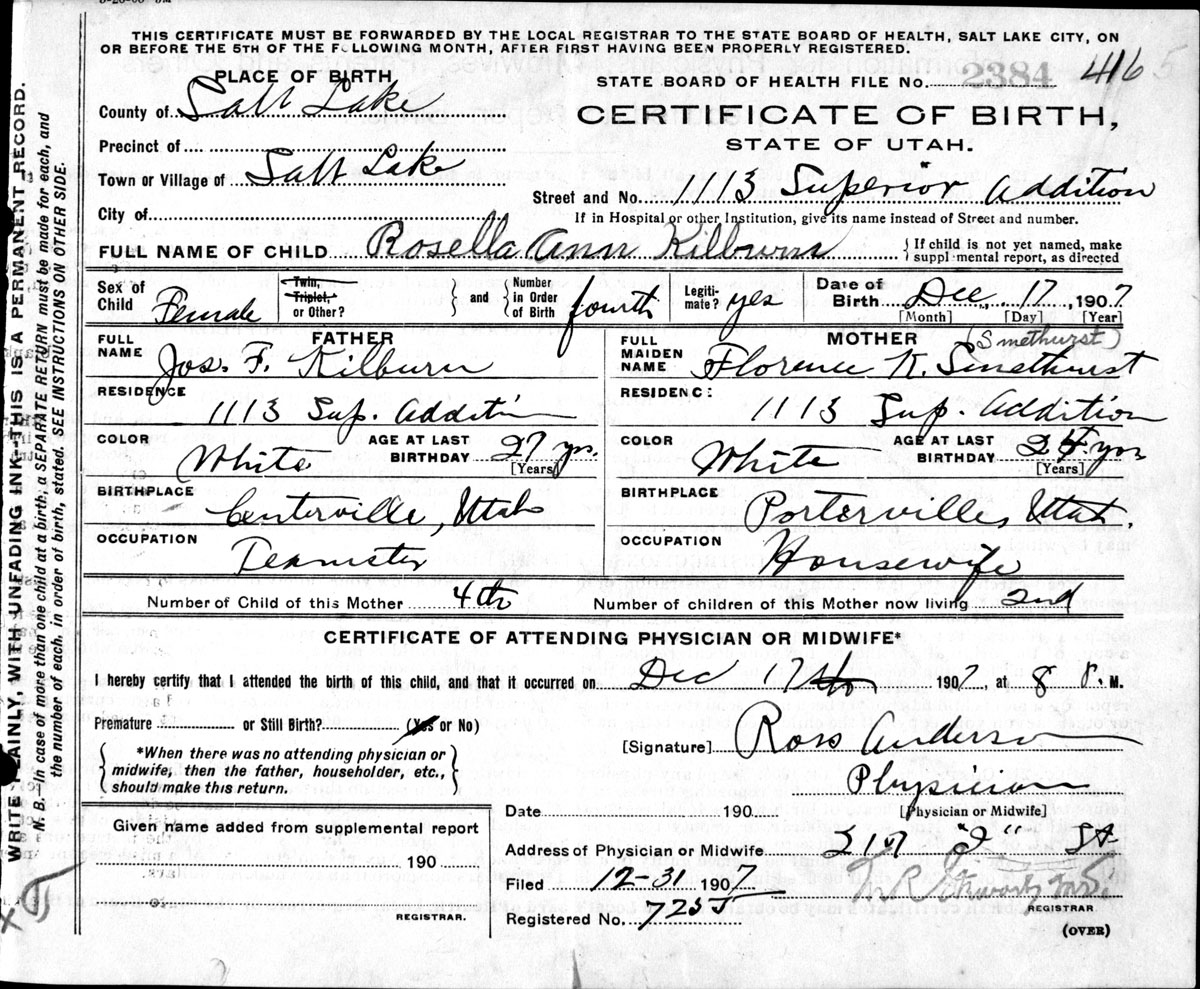 THIS CERTIFICATE MUST BE FORWARDED BY THE LOCAL REGISTRAR TO THE STATE BOARD OF HEALTH, SALT LAKE CITY, ON
OR BEFORE THE 5TH OF THE FOLLOWING MONTH, AFTER FIRST HAVING BEEN PROPERLY REGISTERED.
PLACE OF BIRTH
STATE BOARD OF HEALTH FILE No. 2384 416 5
County of Salt Lake
CERTIFICATE OF BIRTH,
Precinct of
STATE OF UTAH.
Town or Village of Salt Lake
Street and No. 1113 Superior Addition
City of
If in Hospital or other Institution, give its name instead of Street and number.
FULL NAME OF CHILD Rosella Ann Kilburn
{ If child is not yet named, make
suppl mental report, as directed
Sex of Child Female
Twin, Triplet, or Other?
and
Number in Order of Birth fourth
Legiti- mate? yes
Date of Birth Dec. 17, 1907
[Month] [Day] [Year]
FATHER
FULL NAME Jos. F. Kilburn
RESIDENCE 1113 Sup. Addition
COLOR White AGE AT LAST BIRTHDAY 27 yrs.
[Years]
BIRTHPLACE Centerville, Utah
OCCUPATION Teamster
MOTHER (Smethurst)
FULL MAIDEN NAME Florence K. Smethurst
RESIDENC: 1113 Sup. Addition
COLOR White AGE AT LAST BIRTHDAY 24 yrs
[Years]
BIRTHPLACE Porterville, Utah.
OCCUPATION Housewife
Number of Child of this Mother 4th
Number of children of this Mother now living 2nd
CERTIFICATE OF ATTENDING PHYSICIAN OR MIDWIFE*
I hereby certify that I attended the birth of this child, and that it occurred on Dec 17th 1907, at 8 P. M.
Premature or Still Birth? (Yes or No)
[Signature] Ross Anderson
{ *When there was no attending physician or
midwife, then the father, householder, etc.,
should make this return. }
Physician
[Physician or Midwife]
Date 190
Address of Physician or Midwife 217 "I" St
Filed 12-31 1907
REGISTRAR
Registered No. 725
(OVER)
Given name added from supplemental report
190
REGISTRAR.
WRITE PLAINLY, WITH UNFADING INK—THIS IS A PERMANENT RECORD.
N. B.—In case of more than one child at a birth, a SEPARATE RETURN must be made for each, and
the number of each, in order of birth, stated. SEE INSTRUCTIONS ON OTHER SIDE.